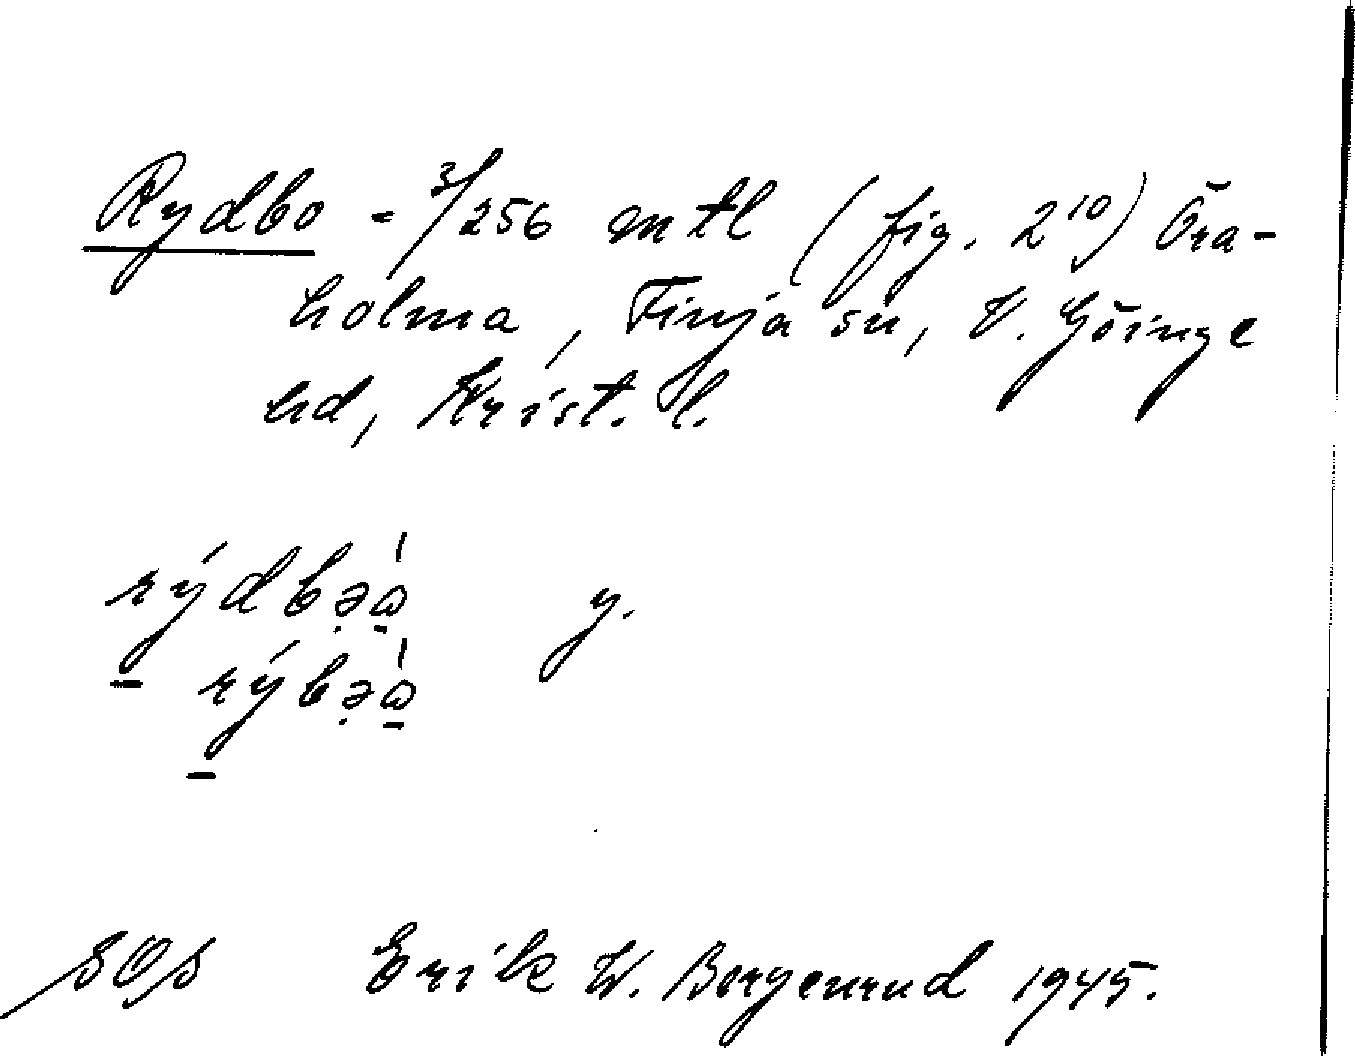 Rydbo = 3/256 mtl (fig. 2¹⁰) Öra-
holma, Finja sn, V. Göinge
hd, Krist. l.
rýdbə̣ώ̱ y.
rýbə̣ώ̱
SOS Erik W. Bergenrud 1945.